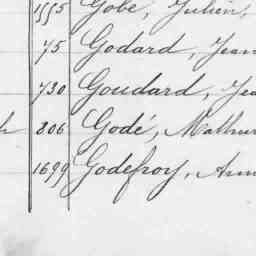 1555 Gobe, Julien,
75 Godard, Jean
730 Goudard, Jea
806 Godé, Mathur
1699 Godefroy, Ann